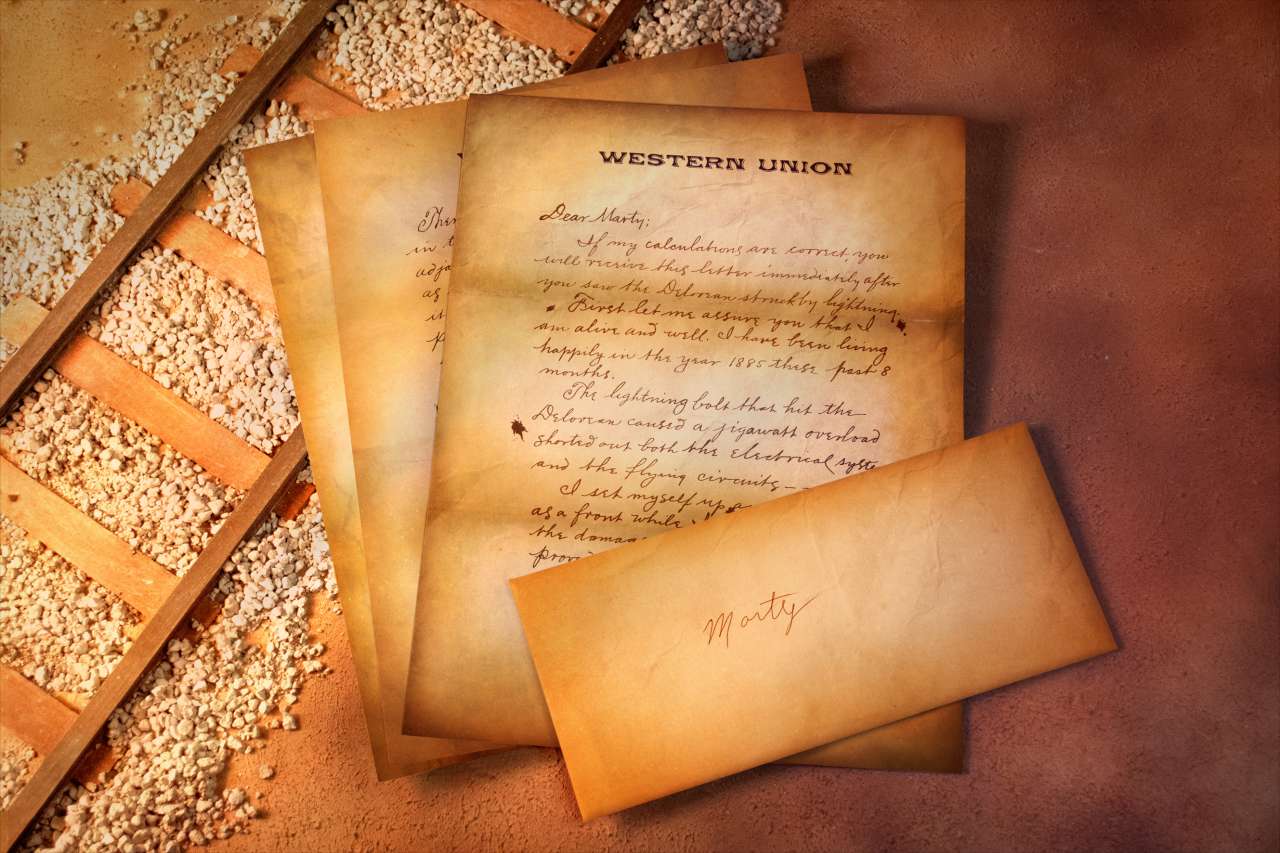 WESTERN UNION
Dear Marty;
If my calculations are correct, you
will receive this letter immediately after
you saw the Delorean struck by lightning.
First let me assure you that I
am alive and well. I have been living
happily in the year 1885 these past 8
months.
The lightning bolt that hit the
Delorean caused a jigawatt overload
shorted out both the electrical syste
and the flying circuits--
I set myself up a
as a front while
the damag
prov
Ther
in t
adja
as
it
Marty